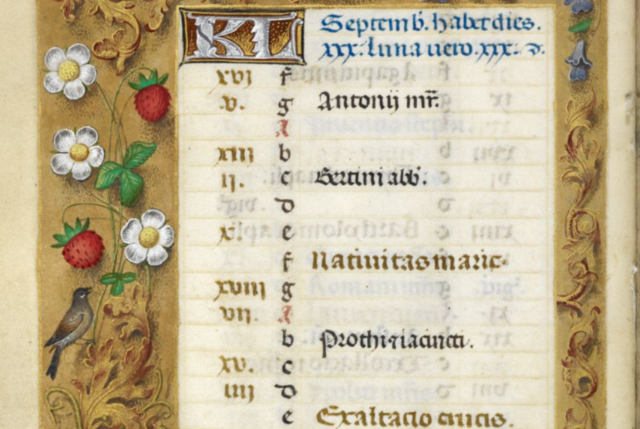 KL Septemb. habet dies.
xxx. luna vero. xxx. d.
xvi f
v. g Antonij mr̄.
A
xiii b
ii. c Bertini abb.
d
x. e
f Nativitas marie.
xviii g
vii A
b Prothi ⁊ iacincti.
xv. c
iiii d
e Exaltacio crucis.